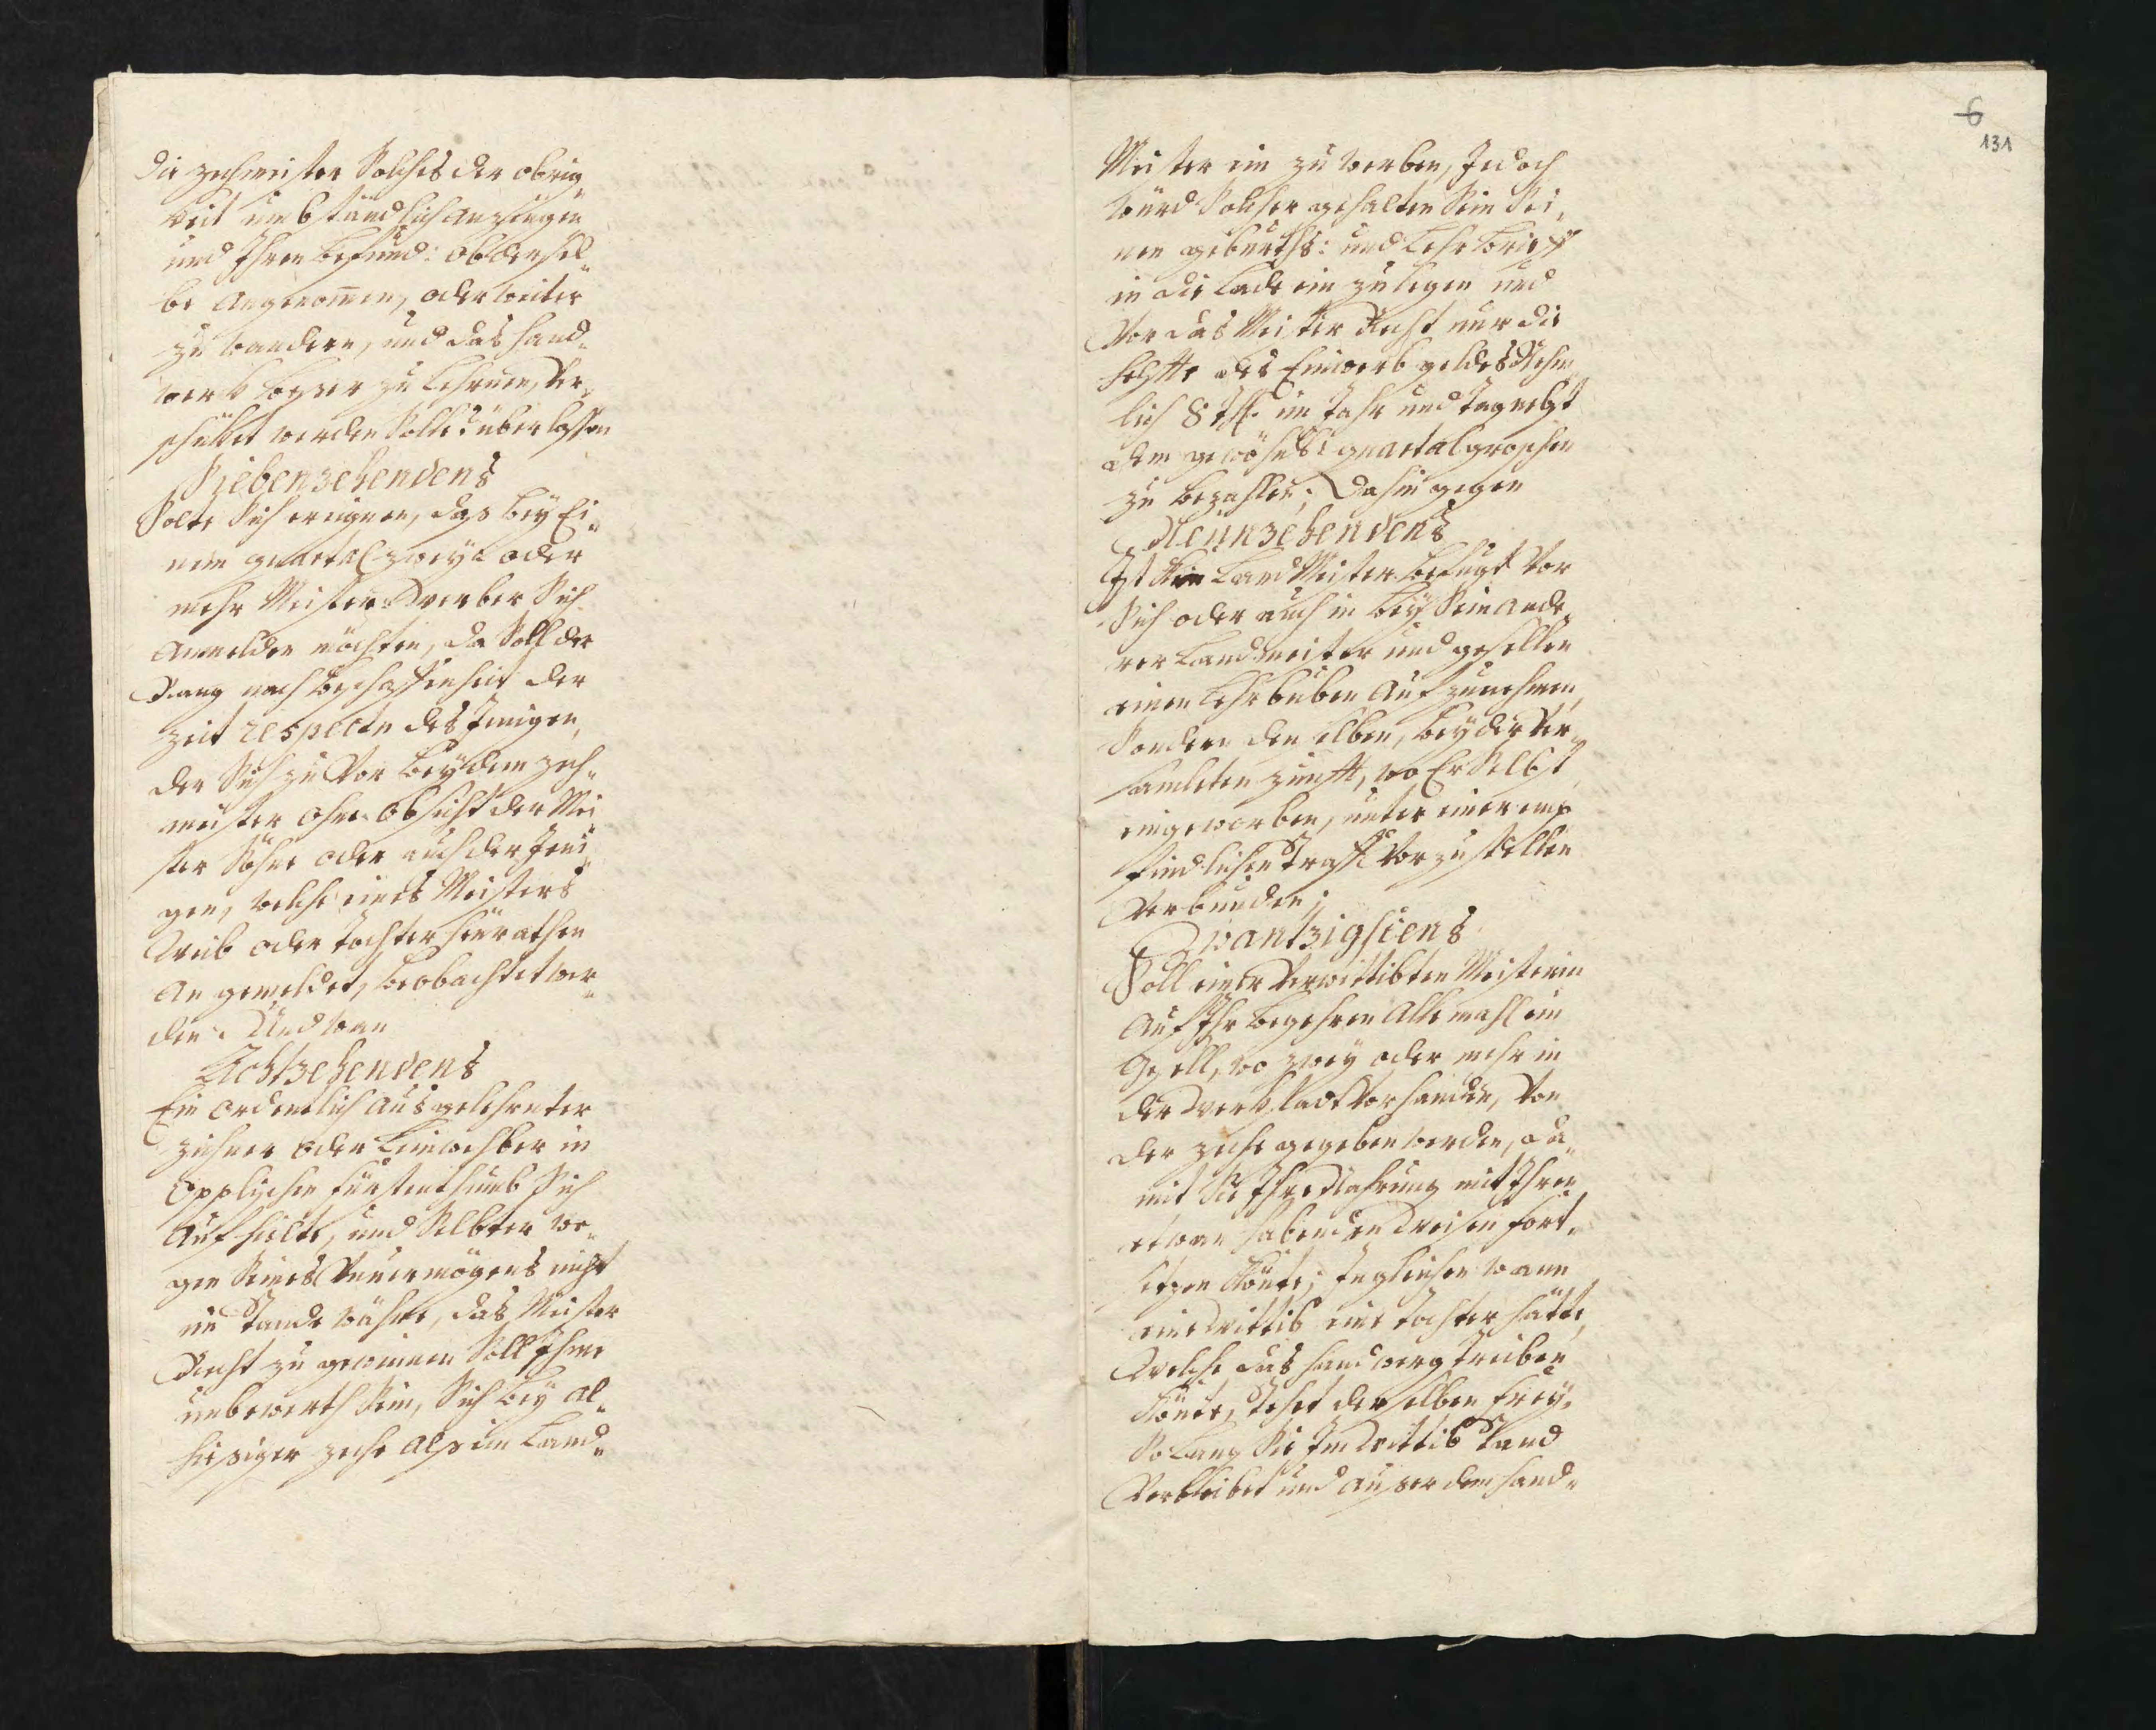 die zechmeister Solches der obrig„
keit umbständlich anzeigen
und Ihren befund: ob derosel„
be angenomen, oder weiter
zu wandern, und das hand„
werk besser zu lehrnen, Ver„
schicket werden Solle? überlassen
Siebenzehendens
Solte Sich ereignen, das beÿ Ei„
nem quartal zweÿ: oder
mehr Meister Werber Sich
anmelden möchten, da Soll der
Rang nach beschaffenheit der
zeit respectu des Jenigen,
der Sich zu Vor beÿ dem zech„
meister ohne absicht der Mei„
ster Söhne oder auch der Jeni„
gen, welche eines Meisters
Weib oder Tochter heürathen
an gemeldet, beobachtet wer„
den. Und wan
Achtzehendens
Ein ordentlich ausgelehrnter
ziehner oder Leinwehber in
Opplischen fürstenthumb Sich
aufhielte, und Selbter we„
gen Seines Unvermögens nicht
im Stande währe, das Meister
Recht zu gewinnen Soll Ihme
unbewerth Sein, Sich beÿ al„
hiesiger zeche als ein Land„
6
131
Meister ein zu werben, Jedoch
würd Solcher gehalten Sein Sei„
nen geburths: und Lehr brieff
in die Lade ein zu legen und
Vor das Meister Recht nur die
helfte des Einwerb geldes Nehm„
lich 8 Thl. in Jahr und Tag nebst
dem gewöhnl: quartal groschen
zu bezahlen; Dahin gegen
Neünzehendens
Ist kein Land Meister befugt Vor
Sich oder auch in beÿ Sein ande„
rer Landmeister und gesellen
einen Lehrbuben aufzunehmen,
Sondern denselben, beÿ der Ver„
samleten zunfft, wo Er Selbst
eingeworben, unter einer emp„
findlichen Straffe Vorzustellen
Verbunden;
Zwantzigstens
Soll einer Verwittibten Meisterin
auf Ihr begehren alle mahl ein
Gesell, wo zweÿ oder mehr in
der Werkstadt Vorhanden, Von
der zeche gegeben werden, da„
mit Sie Ihre Nahrung mit Ihren
etwan habenden Weisen fort„
setzen könte; Ingleichen wann
eine Wittib eine Tochter hätte,
Welche das handwerg treiben
könte, stehet derselben freÿ,
So Lang Sie Im Wittib Stand
Verbleibet und auser dem hand„